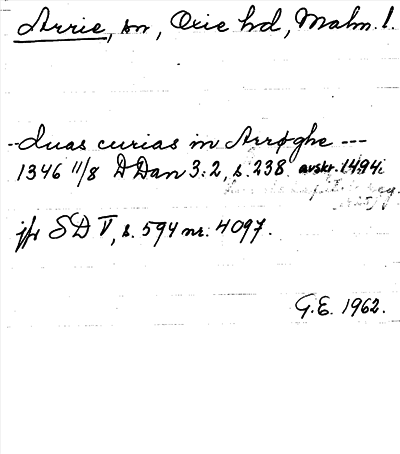 Arrie, sn, Oxie hd, Malm. l.
--duas curias in Arrøghe ---
1346 11/8 D Dan 3:2, s. 238 avskr. 1494 i
jfr SD V, s. 594 nr. 4097.
G.E. 1962.